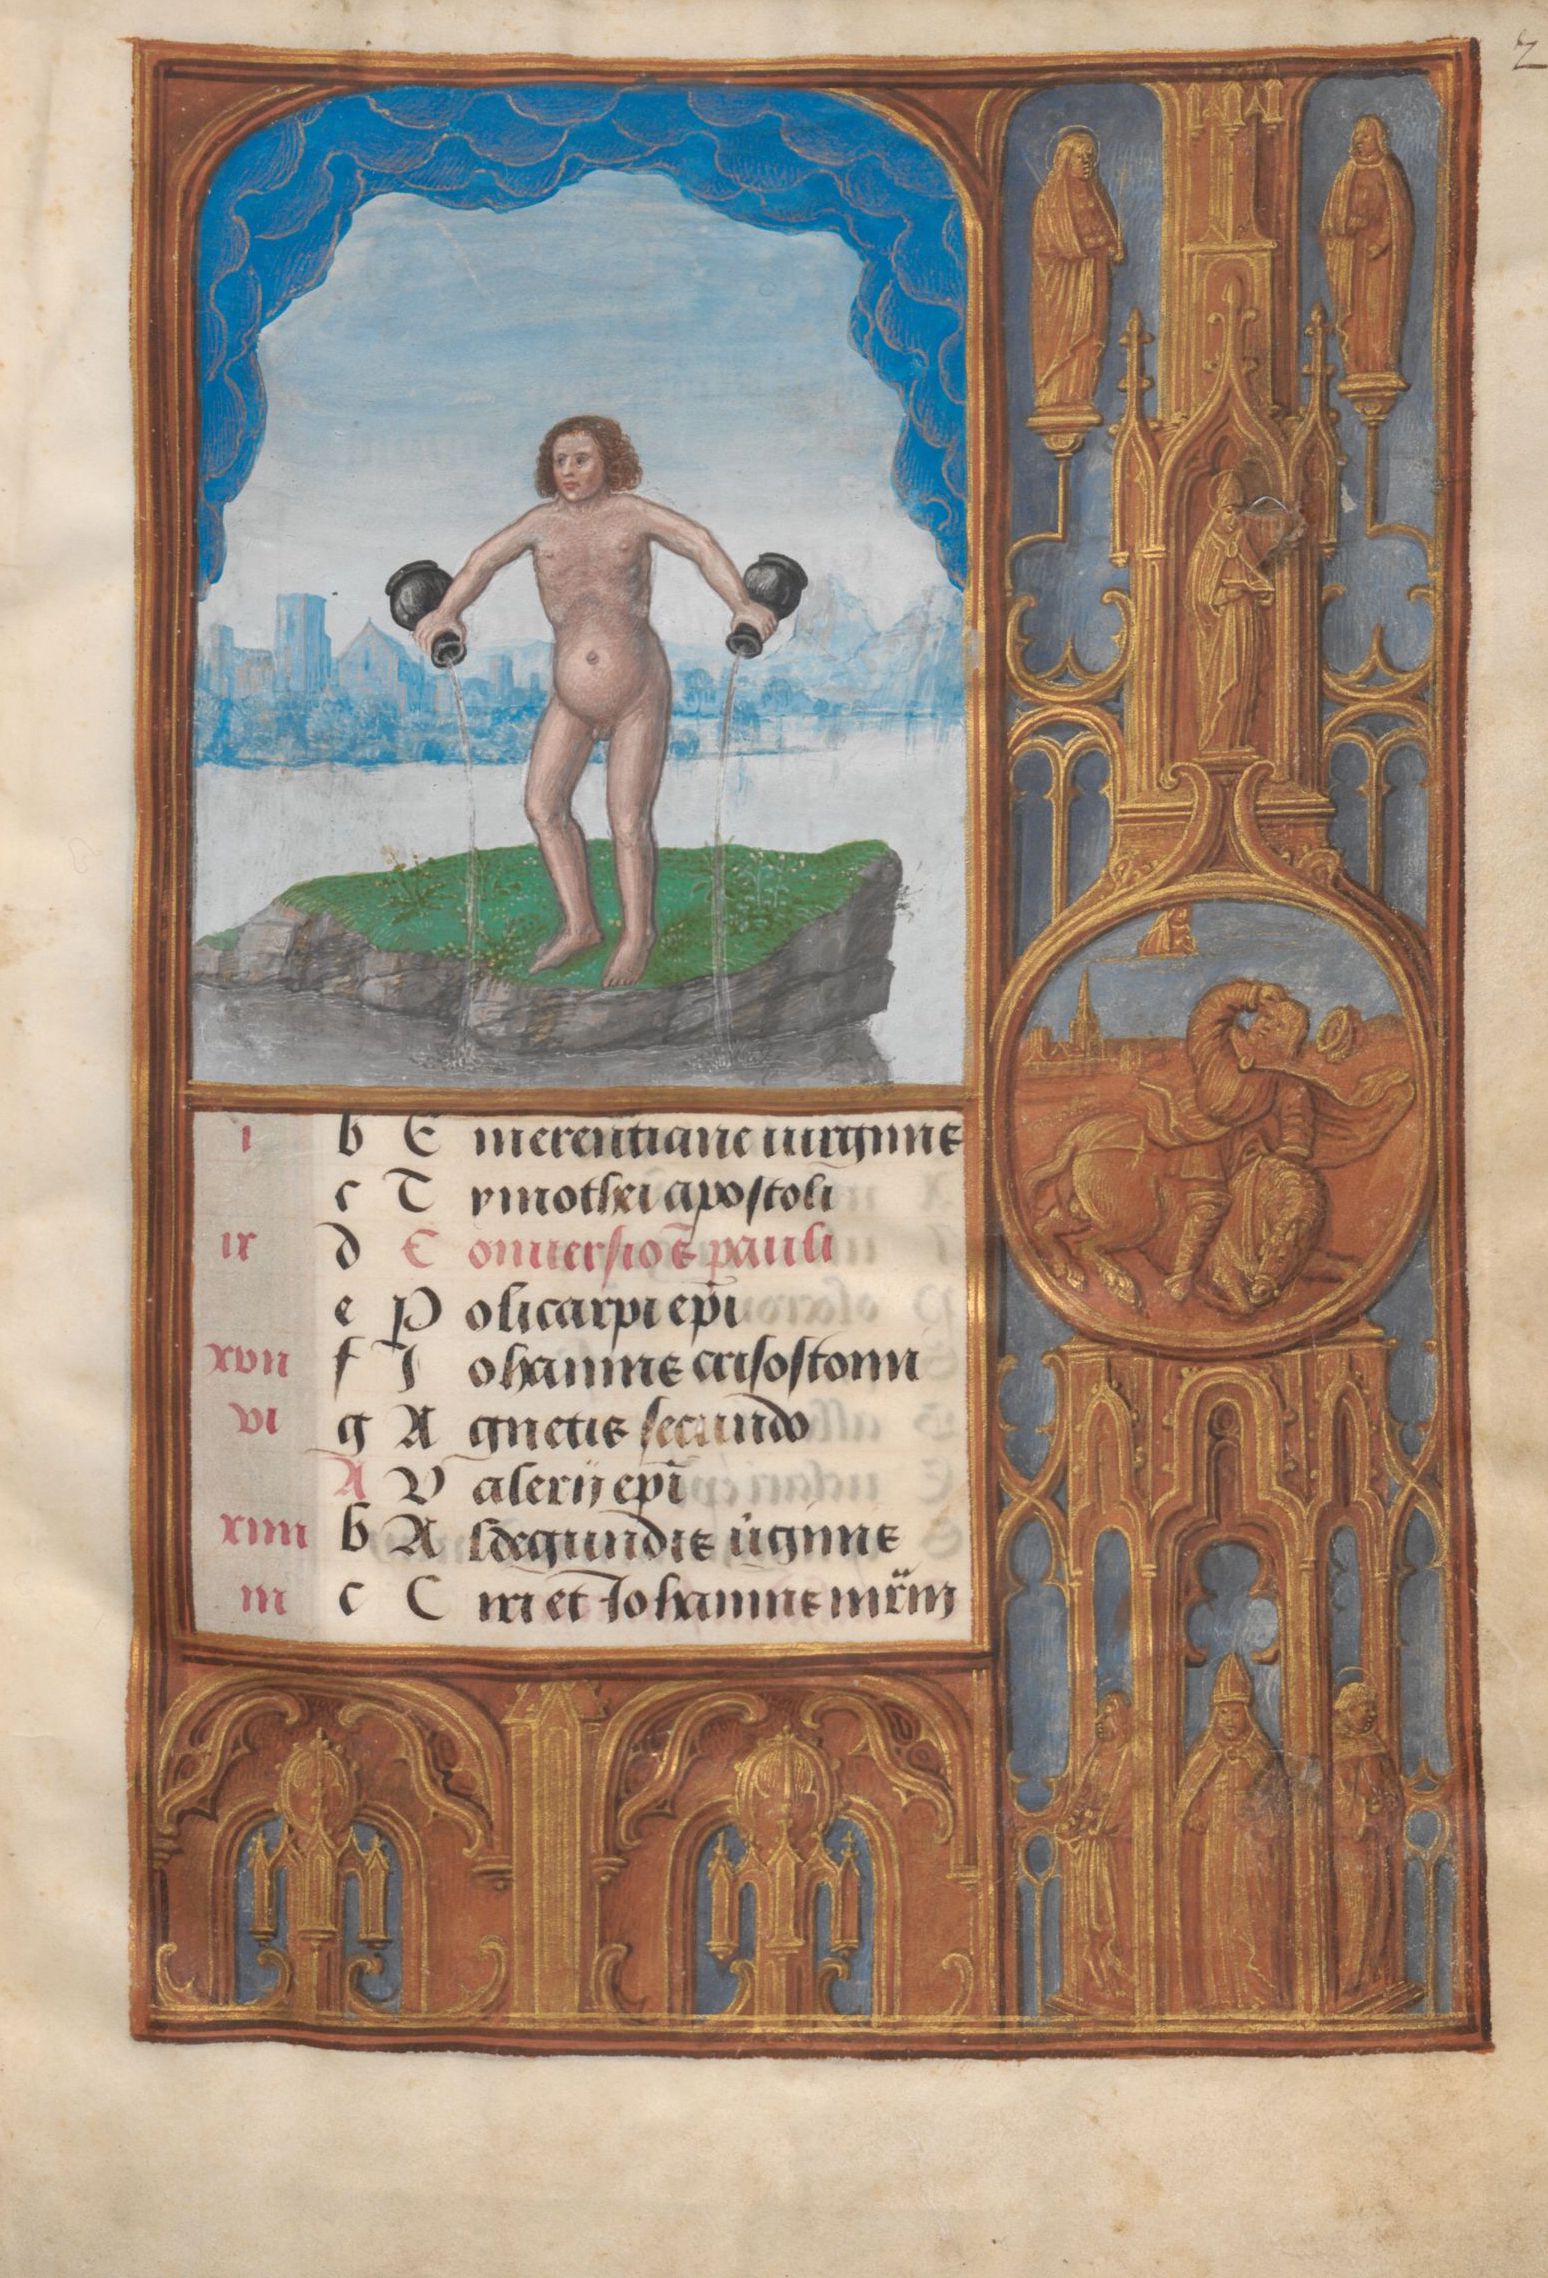 2
i b Emerentiane uirginis
c Tymothei apostoli
ix d Conuersio s̃ pauli
e Policarpi ep̃i
xvii f Iohannis crisostomi
vi g Agnetis secundo
A Valerij ep̃i
xiiii b Aldegundis ũginis
iii c Ciri et Iohannis mr̃m